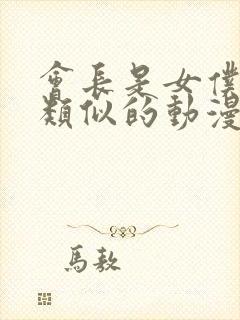 會長是女僕
類似的動漫
馬敖